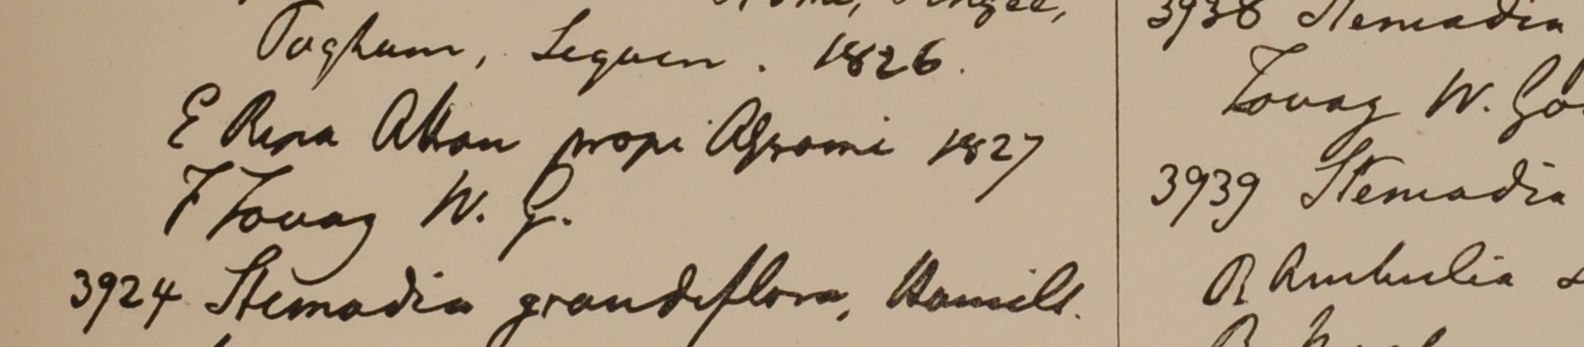 Taghum, Segaen. 1826.
E Ripa Attran prope 1827
F Tavoy W. G.
3924 Stemodia grandiflora, Hamilt.
3938 Stemodia
Tavoy W. Go
3939 Stemodia
B Ambulia